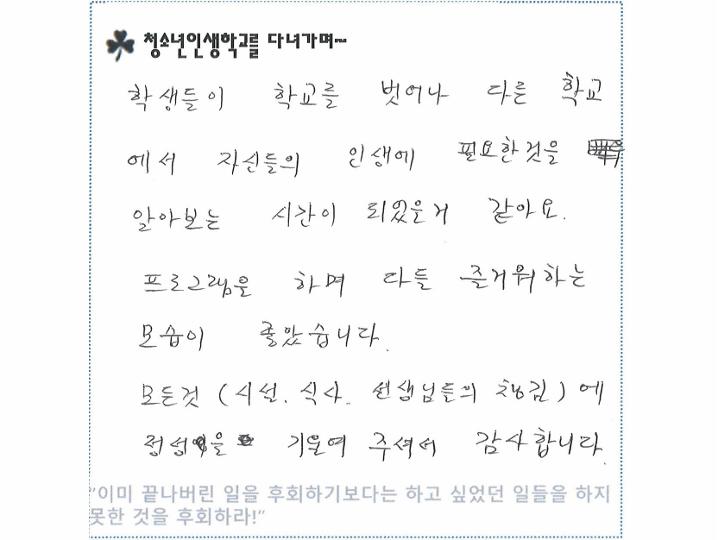 청소년인생학교를 다녀가며~
학생들이 학교를 벗어나 다른 학교
에서 자신들의 인생에 필요한것을
알아보는 시간이 되었을거 같아요.
프로그램을 하며 다들 즐거워하는
모습이 좋았습니다.
모든것 (시설. 식사. 선생님들의 챙김) 에
정성을 기울여 주셔서 감사합니다.
"이미 끝나버린 일을 후회하기보다는 하고 싶었던 일들을 하지
못한 것을 후회하라!"